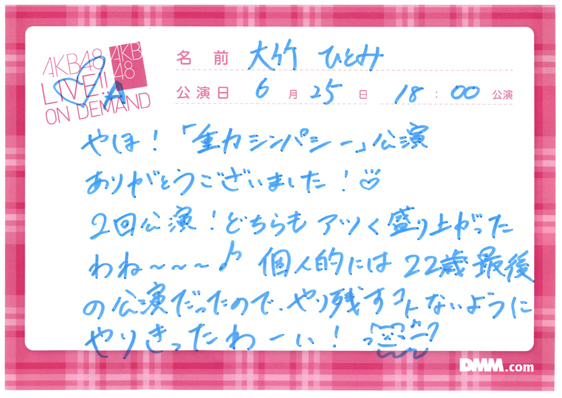 AKB48
LIVE!!
ON DEMAND
AKB
48
A
名前 大竹 ひとみ
公演日 6月25日 18:00公演
やほ！「全力シンパシー」公演
ありがとうございました！♡
2回公演！どちらもアツく盛り上がった
わね〜〜〜♪ 個人的には22歳最後
の公演だったので、やり残すコトないように
やりきったわーい！
DMM.com